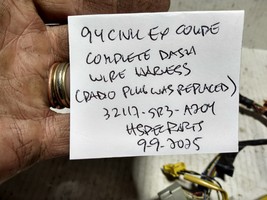 94 CIVIC EX COUPE
COMPLETE DASH
WIRE HARNESS
(RADIO PLUG WAS REPLACED)
32117-SR3-A704
HSPECPARTS
9-9-2025